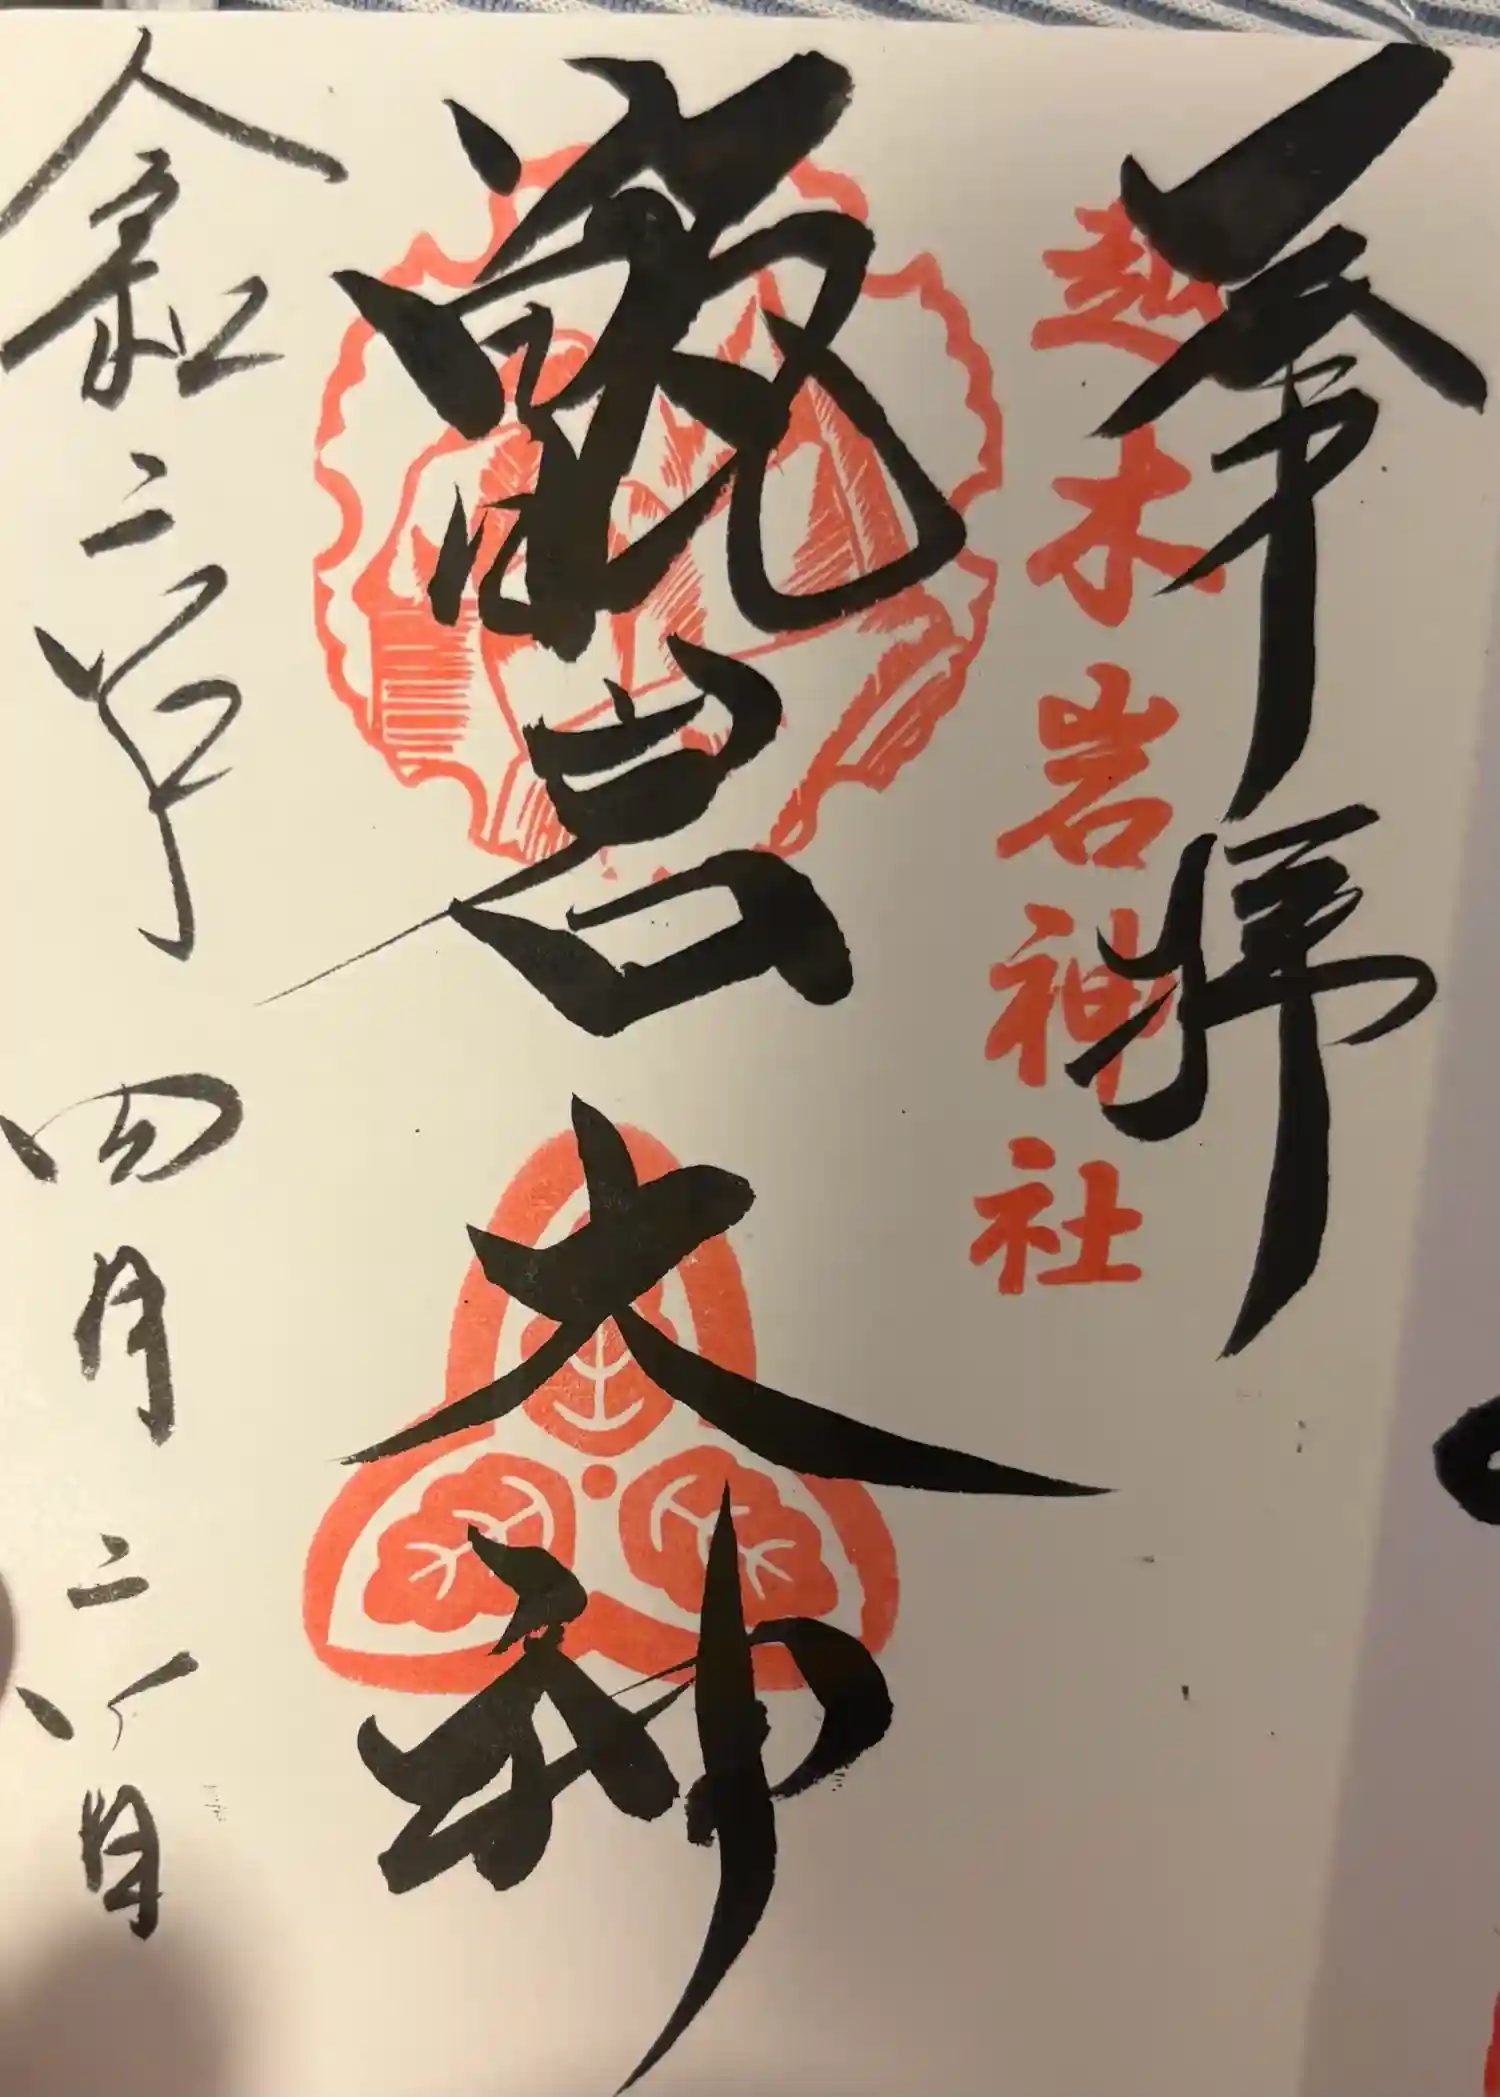 奉拝
越木岩神社
甑岩大神
令和二年四月二八日